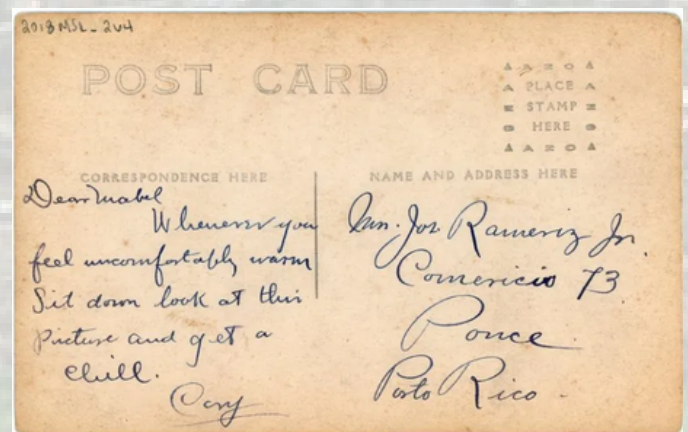 2018 MSL - 204
POST CARD
AZO
PLACE
STAMP
HERE
AZO
CORRESPONDENCE HERE
NAME AND ADDRESS HERE
Dear Mabel
Whenever you
feel uncomfortably warm
Sit down look at this
Picture and get a
chill.
Cory
Mrs. Jos Rameriz Jr.
Comericio 73
Ponce.
Porto Rico.